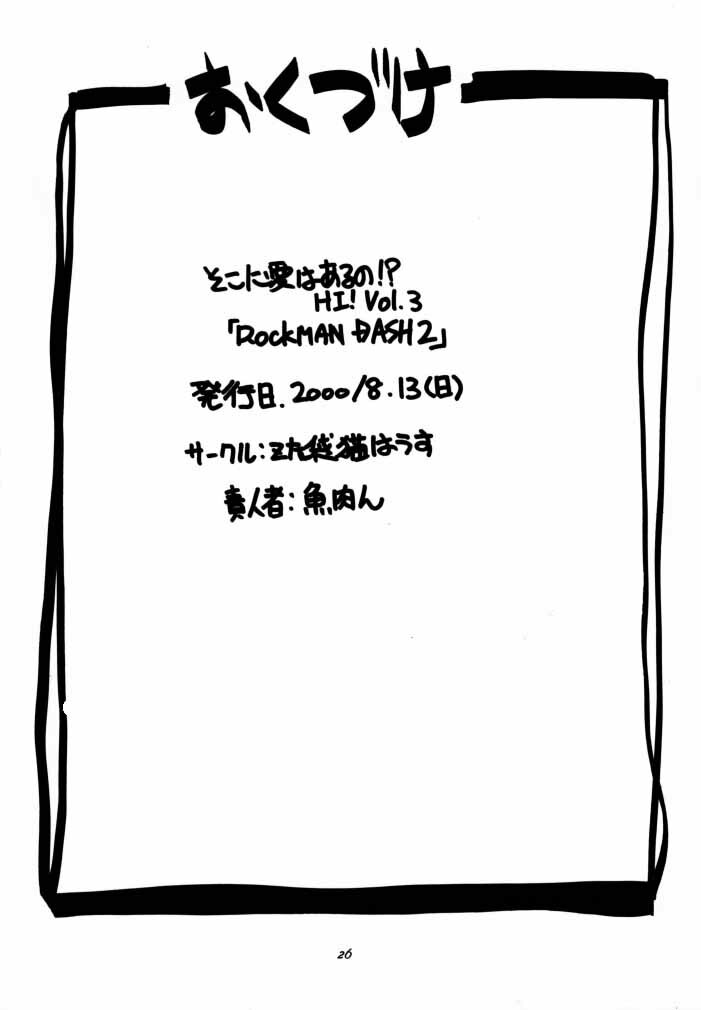 おくづけ
そこに愛はあるの!?
HI! Vol.3
「RockMAN DASH2」
発行日. 2000/8.13(日)
サークル:猫はうす
責人者:魚肉ん
26